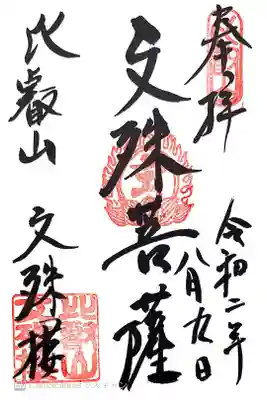 奉拝
令和二年
八月九日
文殊菩薩
比叡山
文殊楼